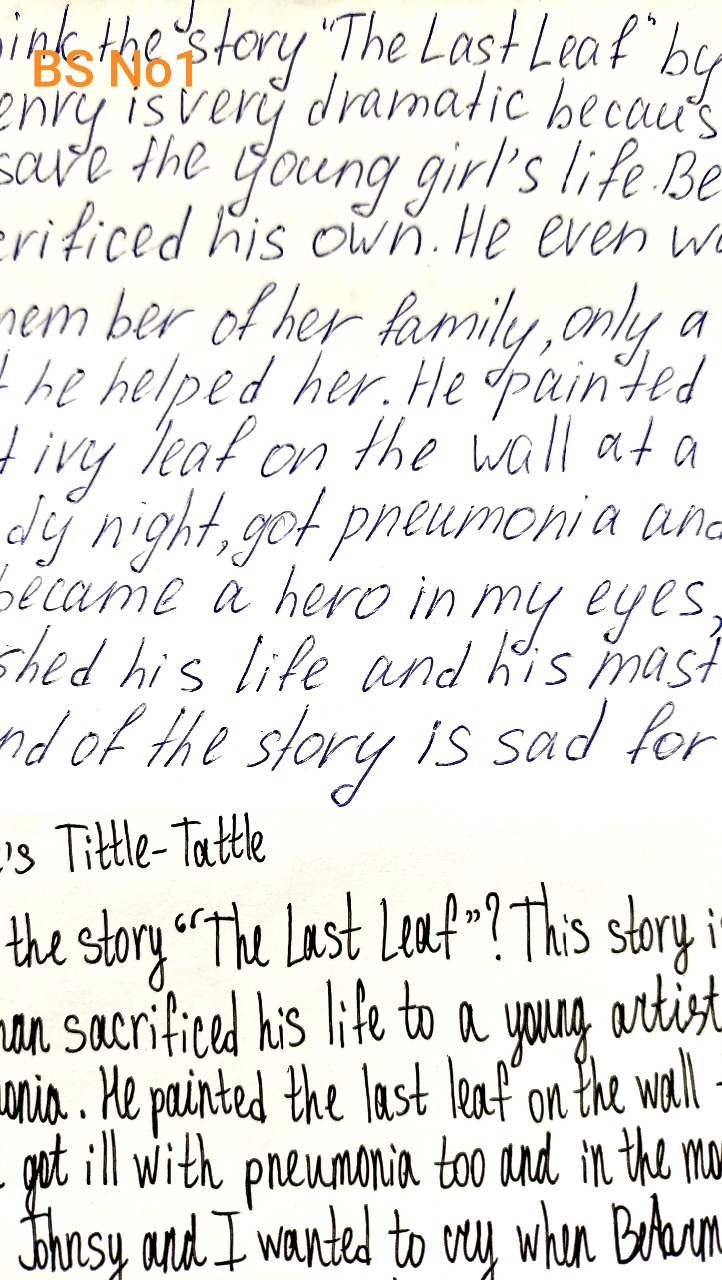 ink the story "The Last Leaf" by
BS No1
enry is very dramatic becaus
save the young girl's life. Be
crificed his own. He even wa
mem ber of her family, only a
t he helped her. He painted
t ivy leaf on the wall at a
dy night, got pneumonia and
became a hero in my eyes,
shed his life and his mast
nd of the story is sad for
's Tittle-Tattle
the story “The Last Leaf”? This story is
man sacrificed his life to a young artist
onia. He painted the last leaf on the wall
got ill with pneumonia too and in the mo
Johnsy and I wanted to cry when Behrm